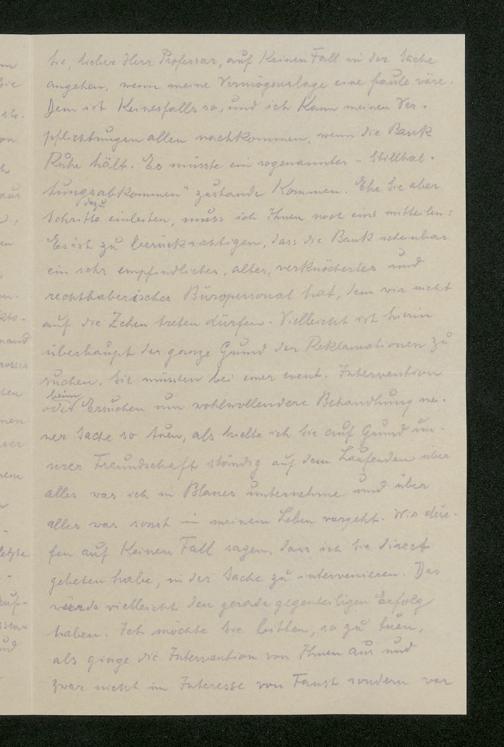 Sie, lieber Herr Professor, auf keinen Fall in der Sache
angehen, wenn meine Vermögenslage eine faule wäre.
Dem ist keinesfalls so, und ich kann meinen Ver-
pflichtungen allen nachkommen, wenn die Bank
Ruhe hält. Es müsste ein sogenanntes - Stillhal-
tungsabkommen" zustande kommen. Ehe Sie aber
dazu
Schritte einleiten, muss ich Ihnen noch eins mitteilen:
Es ist zu berücksichtigen, dass die Bank scheinbar
ein sehr empfindliches, altes, verknöchertes und
rechthaberisches Büropersonal hat, dem wir nicht
auf die Zehen treten dürfen. Vielleicht ist hierin
überhaupt der ganze Grund der Reklamationen zu
suchen. Sie müssten bei einer event. Intervention
beim
oder Ersuchen um wohlwollendere Behandlung mei-
ner Sache so tuen, als hielte ich Sie auf Grund un-
serer Freundschaft ständig auf dem Laufenden über
alles was ich in Blanes unternehme und über
alles was sonst in meinem Leben vorgeht. Wir dür-
fen auf keinen Fall sagen, dass ich Sie direct
gebeten habe, in der Sache zu intervenieren. Das
würde vielleicht den gerade gegenteiligen Erfolg
haben. Ich möchte Sie bitten, so zu tuen,
als ginge die Intervention von Ihnen aus und
zwar nicht im Interesse von Faust sondern vor